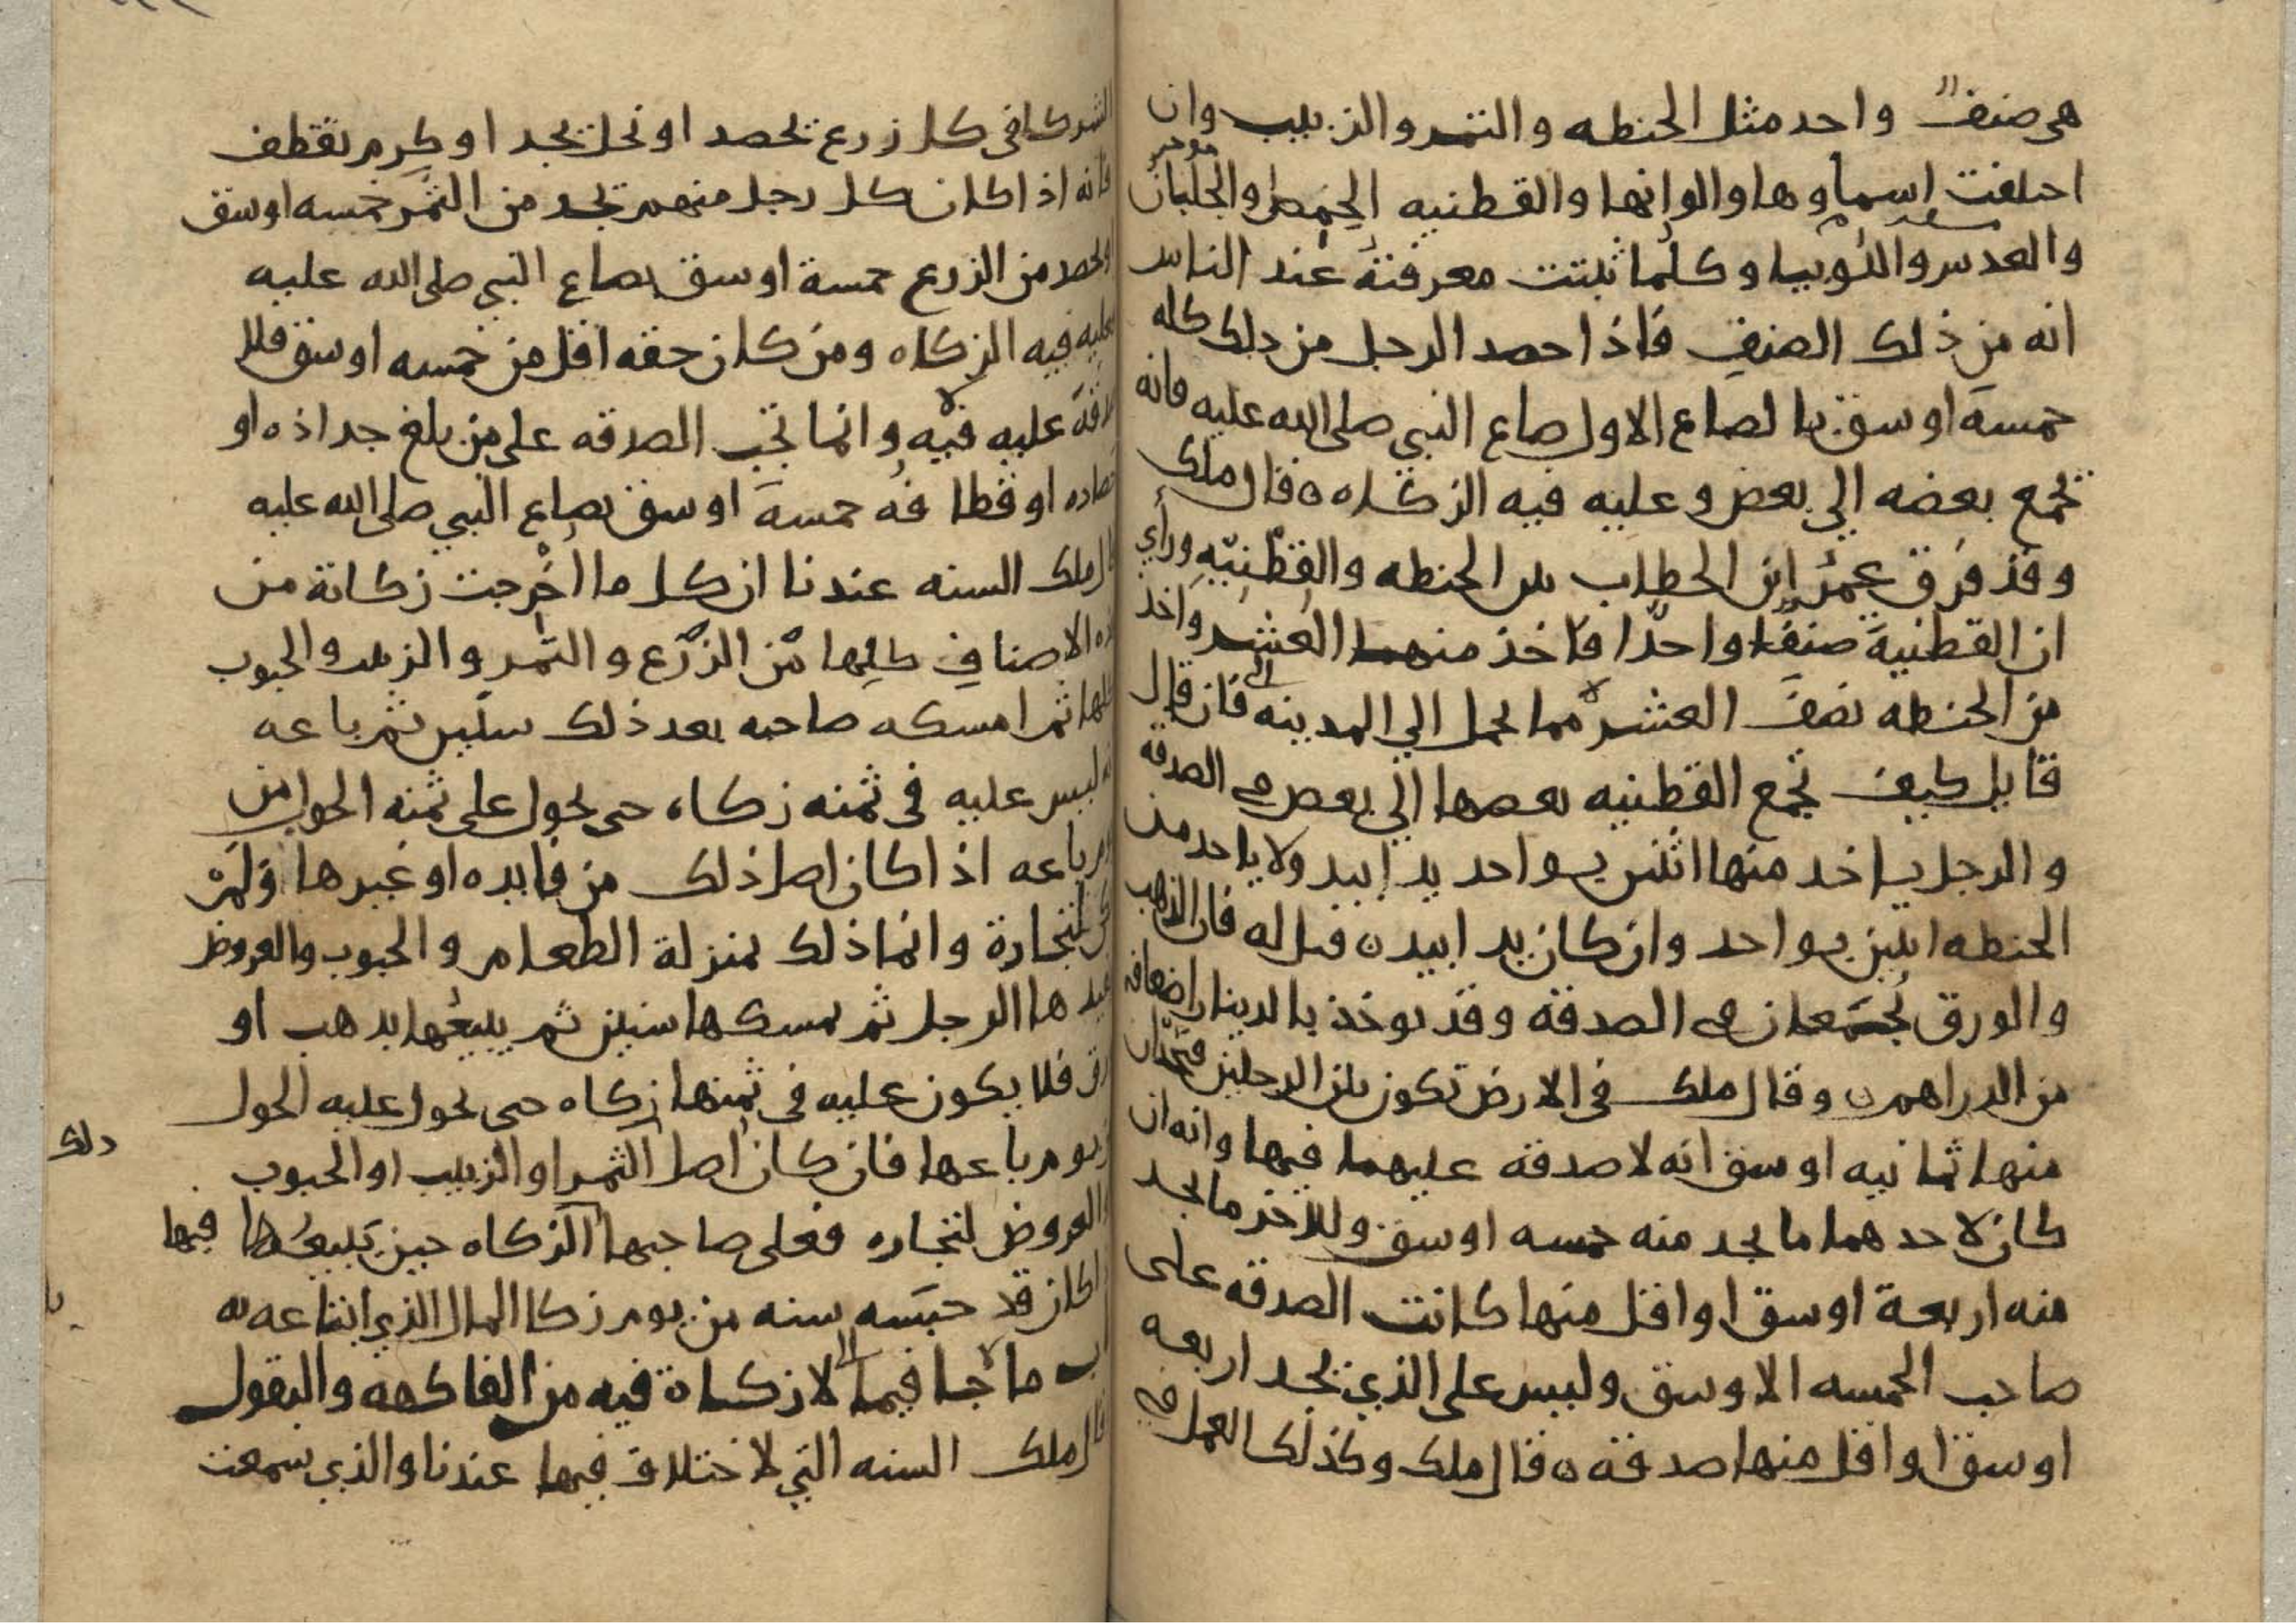 هي صنف واحد مثل الحنطه والتمر والزبيب وان
اختلفت اسماوها والوانها والقطنيه الحمص والجلبان
والعدس واللوبيا وكلما ثبتت معرفته عند الناس
انه من ذلك الصنف فاذا حصد الرجل من ذلك كله
خمسة اوسق بالصاع الاول صاع النبي صلى الله عليه فانه
يجمع بعضه الي بعض وعليه فيه الزكاه ٥ قال ملك
وقد فرق عمر ابن الخطاب بين الحنطه والقطنيه وراي
ان القطنية صنفا واحدا فاخذ منها العشر واخذ
من الحنطه نصف العشر مما يحمل الي المدينه فان قال
قايل كيف تجمع القطنيه بعضها الي بعض في الصدقة
والرجل ياخد منها اثنين بواحد يدا بيد ولا ياخد من
الحنطه اثنين بواحد وان كان يدا بيد ٥ قيل له فان الذهب
والورق يجمعان في الصدقة وقد يوخذ بالدينار اضعافه
من الدراهم ٥ وقال ملك في الارض تكون بين الرجلين فيجذان
منها ثمانيه اوسق انه لا صدقه عليهما فيها وانه ان
كان لاحدهما ما يجد منه خمسه اوسق وللاخر ما يجد
منه اربعة اوسق او اقل منها كانت الصدقه على
صاحب الخمسه الاوسق وليس على الذي يجد اربعه
اوسق او اقل منها صدقه ٥ قال ملك وكذلك العمل في
الشركا في كل زرع يحصد او نخل يجد او كرم يقطف
فانه اذا كان كل رجل منهم يجد من الثمر خمسه اوسق
من الزرع خمسة اوسق بصاع النبي صلى الله عليه
فعليه فيه الزكاه ومن كان حقه اقل من خمسه اوسق فلا
صدقة عليه فيه وانما تجب الصدقه على من بلغ جداذه او
حصاده او قطافه خمسة اوسق بصاع النبي صلى الله عليه
قال ملك السنه عندنا ان كل ما اخرجت زكاتة من
هذه الاصناف كلها من الزرع والتمر والزبيب والحبوب
كلها ثم امسكه صاحبه بعد ذلك سنين ثم باعه
انه ليس عليه في ثمنه زكاه حتى يحول على ثمنه الحول من
يوم باعه اذا كان اصل ذلك من فايده او غيرها ولم
يكن لتجارة وانما ذلك بمنزلة الطعام والحبوب والعروض
يفيدها الرجل ثم يمسكها سنين ثم يبيعها بدهب او
ورق فلا يكون عليه في ثمنها زكاه حتى يحول عليه الحول
من يوم باعها فان كان اصل الثمر او الزبيب او الحبوب
ذلك
والعروض لتجاره فعلى صاحبها الزكاه حين يبيعها فيها
اذا كان قد حبسه سنه من يوم زكا المال الذي ابتاعه به
باب ما جا فيما لا زكاة فيه من الفاكهه والبقول
قال ملك السنه التي لا ختلاف فيها عندنا والذي سمعت